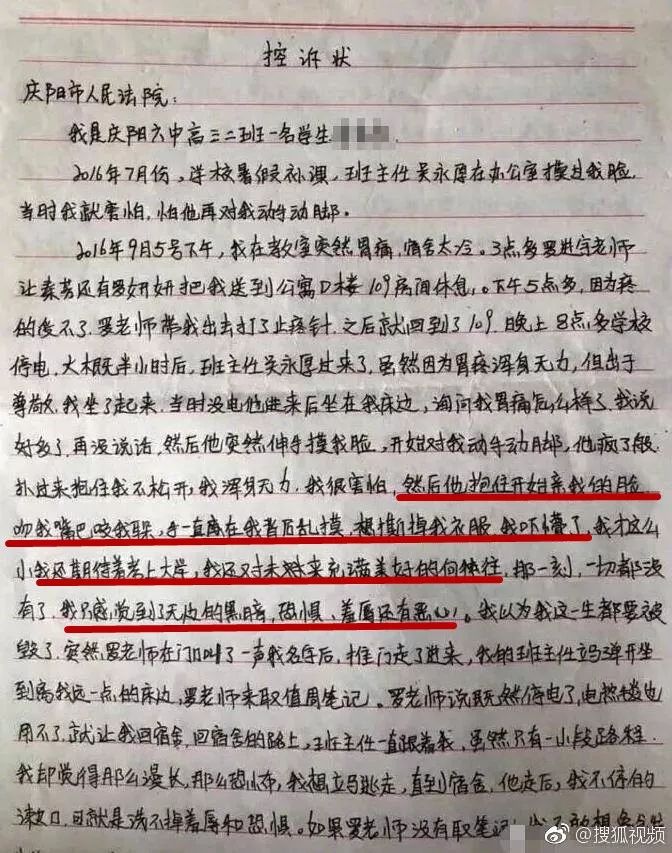 控诉状
庆阳市人民法院:
我是庆阳六中高三二班一名学生
2016年7月份,学校暑假补课,班主任吴永厚在办公室摸过我脸
当时我就害怕,怕他再对我动手动脚。
2016年9月5号下午,我在教室突然胃痛,宿舍太冷。3点多罗进宇老师
让秦芳还有罗妍妍把我送到公寓D楼109房间休息。下午5点多,因为疼
的受不了.罗老师带我出去打了止疼针.之后就回到了109.晚上8点多学校
停电.大概半小时后,班主任吴永厚过来了.虽然因为胃疼浑身无力,但出于
尊敬.我坐了起来.当时没电他进来后坐在我床边,询问我胃痛怎么样了.我说
好多了.再没说话,然后他突然伸手摸我脸,开始对我动手动脚,他疯了般
扑过来抱住我不松开,我浑身无力.我很害怕,然后他抱住开始亲我的脸
吻我嘴巴咬我耳朵,手一直在我背后乱摸,想撕掉我衣服.我吓懵了.我才这么
小我还期待着考上大学,我还对未来充满美好的向往,那一刻,一切都没
有了.我只感觉到了无边的黑暗,恐惧、羞辱还有恶心。我以为我这一生都要被
毁了.突然罗老师在门口叫了一声我名字后,推门走了进来,我的班主任立马弹开坐
到离我远一点的床边,罗老师来取值周笔记。罗老师说既然停电了,电热毯也
用不了.就让我回宿舍,回宿舍的路上,班主任一直跟着我,虽然只有一小段路程.
我却觉得那么漫长,那么恐怖,我想立马逃走,直到宿舍,他走后,我不停的
漱口,可就是洗不掉羞辱和恐惧。如果罗老师没有取笔记
@搜狐视频